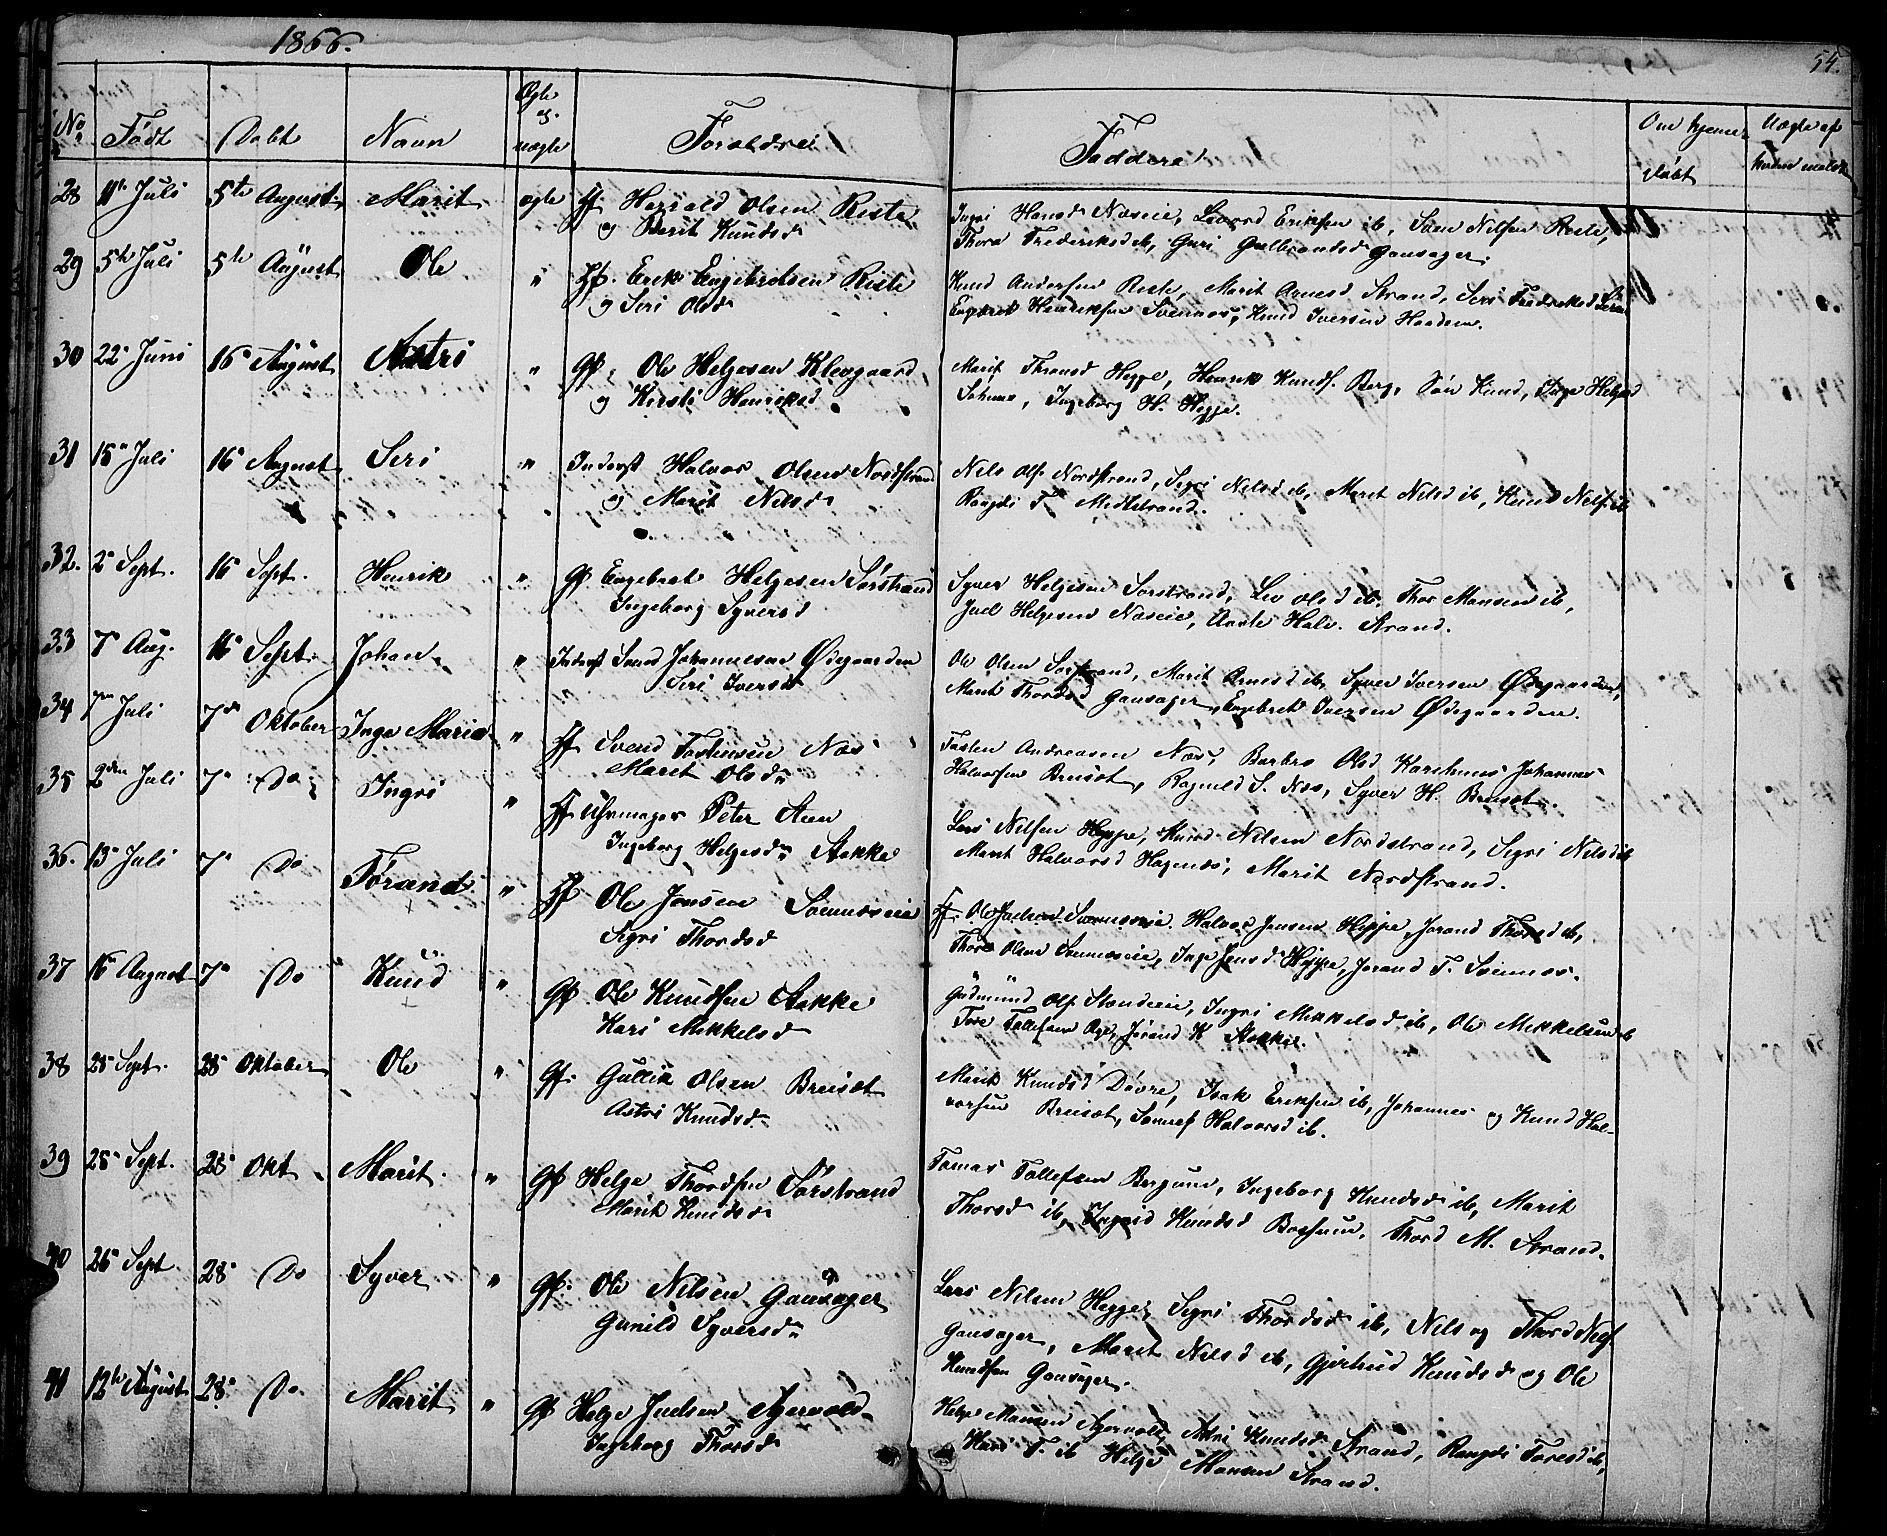 1866.
54.
No Født Døbt Navn Ægte og uægte Forældre Faddere Om hjemme døbt Uægte af
28 11te Juli 5te August Marit ægte Harald Olsen Riste
og Berit Knudsd
Ingri Hansd Næseie, Eriksen ib, Nilsen Riste,
Thora Frederiksd ib, Guri Gulbrandsd Gausager.
29 5te Juli 5te August Ole " Erik Engebretsen Riste
og Seri Olsd
Knud Andersen Riste, Marit Arnesd Strand, Seri Fredriksd
Engebret Henriksen Svennes, Knud Iversen
30 22 Juni 16 August Astri " Gf. Ole Helgesen Klevgaard
og Kirsti Henriksd
Marit Thronsd Hegge, Henrik Knuds. Berg, Knud, Inga Helgesd
Ingeborg H. Hegge.
31 15 Juli 16 August Seri " Inderst Halvor Olsen Nordstrand
og Marit Nilsd
Nils Ols Nordstrand, Sigri Nilsd ib, Marit Nilsd ib, Knud Nils ib
Rangdi T. Midtstrand.
32. 2 Sept. 16 Sept. Henrik " Gf Engebret Helgesen Sørstrand
Ingeborg Syversd
Syver Helgesen Sørstrand, Liv Olsd ib, Thor Monsen ib,
Juel Helgesen Næseie, Halv. Strand.
33 7 Aug. 16 Sept. Johan " Inderst Johannesen Ødegaarden
Seri Iversd
Ole Olsen Sørstrand, Marit Arnesd ib, Syver Iversen Ødegaarden,
Marit Thordsd Gausager, Engebret Iversen Ødegaarden.
34 7de Juli 7de Oktober Inga Maria " Svend Tostensen Næs
Marit Olsd
Tosten Andreasen Næs, Barbro Olsd Johannes
Halvorsen Breiset, Ragnild S. Næs, Syver H. Breiset.
35 2den Juli 7 Do Ingri " Uhrmager Peter Aen
Ingeborg Helgesd Stakke
Lars Nilsen Hegge, Knud Nilsen Nordstrand, Sigri Nilsd ib
Marit Halvorsd Hagenæs, Marit Nordstrand.
36. 13 Juli 7 Do Jørand " Ole Jensen Svennæseie
Sigri Thordsd
Ole Juelsen Svennæseie. Halvor Jensen Hegge, Jorand Thorsd ib,
Thore Olsen Svennæseie, Inga Jensd Hegge, Jorand T. Svennes.
37 16 August 7 Do Knud " Gf Ole Knudsen Stakke
Kari Mikkelsd
Gudmund Ols Ingri Mikkelsd ib, Ole Mikkelsen ib
Tore Tollefsen Jørand K Stakke.
38 25 Sept. 28 Oktober Ole " Gf. Gullik Olsen Breiset
Astri Knudsd
Marit Knudsd Døvre, Isak Eriksen ib, Johannes og Knud Hal-
vorsen Breiset, Halvorsd ib.
39 25 Sept. 28 Okt. Marit. " Gf Helge Thordsen Sørstrand
Marit Knudsd
Tomas Tollefsen Bergum, Ingeborg Knudsd ib, Marit
Thorsd ib, Ingrid Knudsd Thord M. Strand.
40 26 Sept 28 Do Syver " Gf. Ole Nilsen Gausager
Gunild Syversd
Lars Nilsen Hegge, Sigri Thordsd ib, Nils og Thord Niels.
Gausager, Marit Nilsd ib, Gjertrud Knudsd og Ole
Knudsen Gausager.
41 12te August 28 Do. Marit " Gf Helge Juelsen
Ingeborg Thorsd
Helge Monsen Astri Knudsd Strand, Rangdi Toresd ib,
Kari T. ib Helge Monsen Strand.